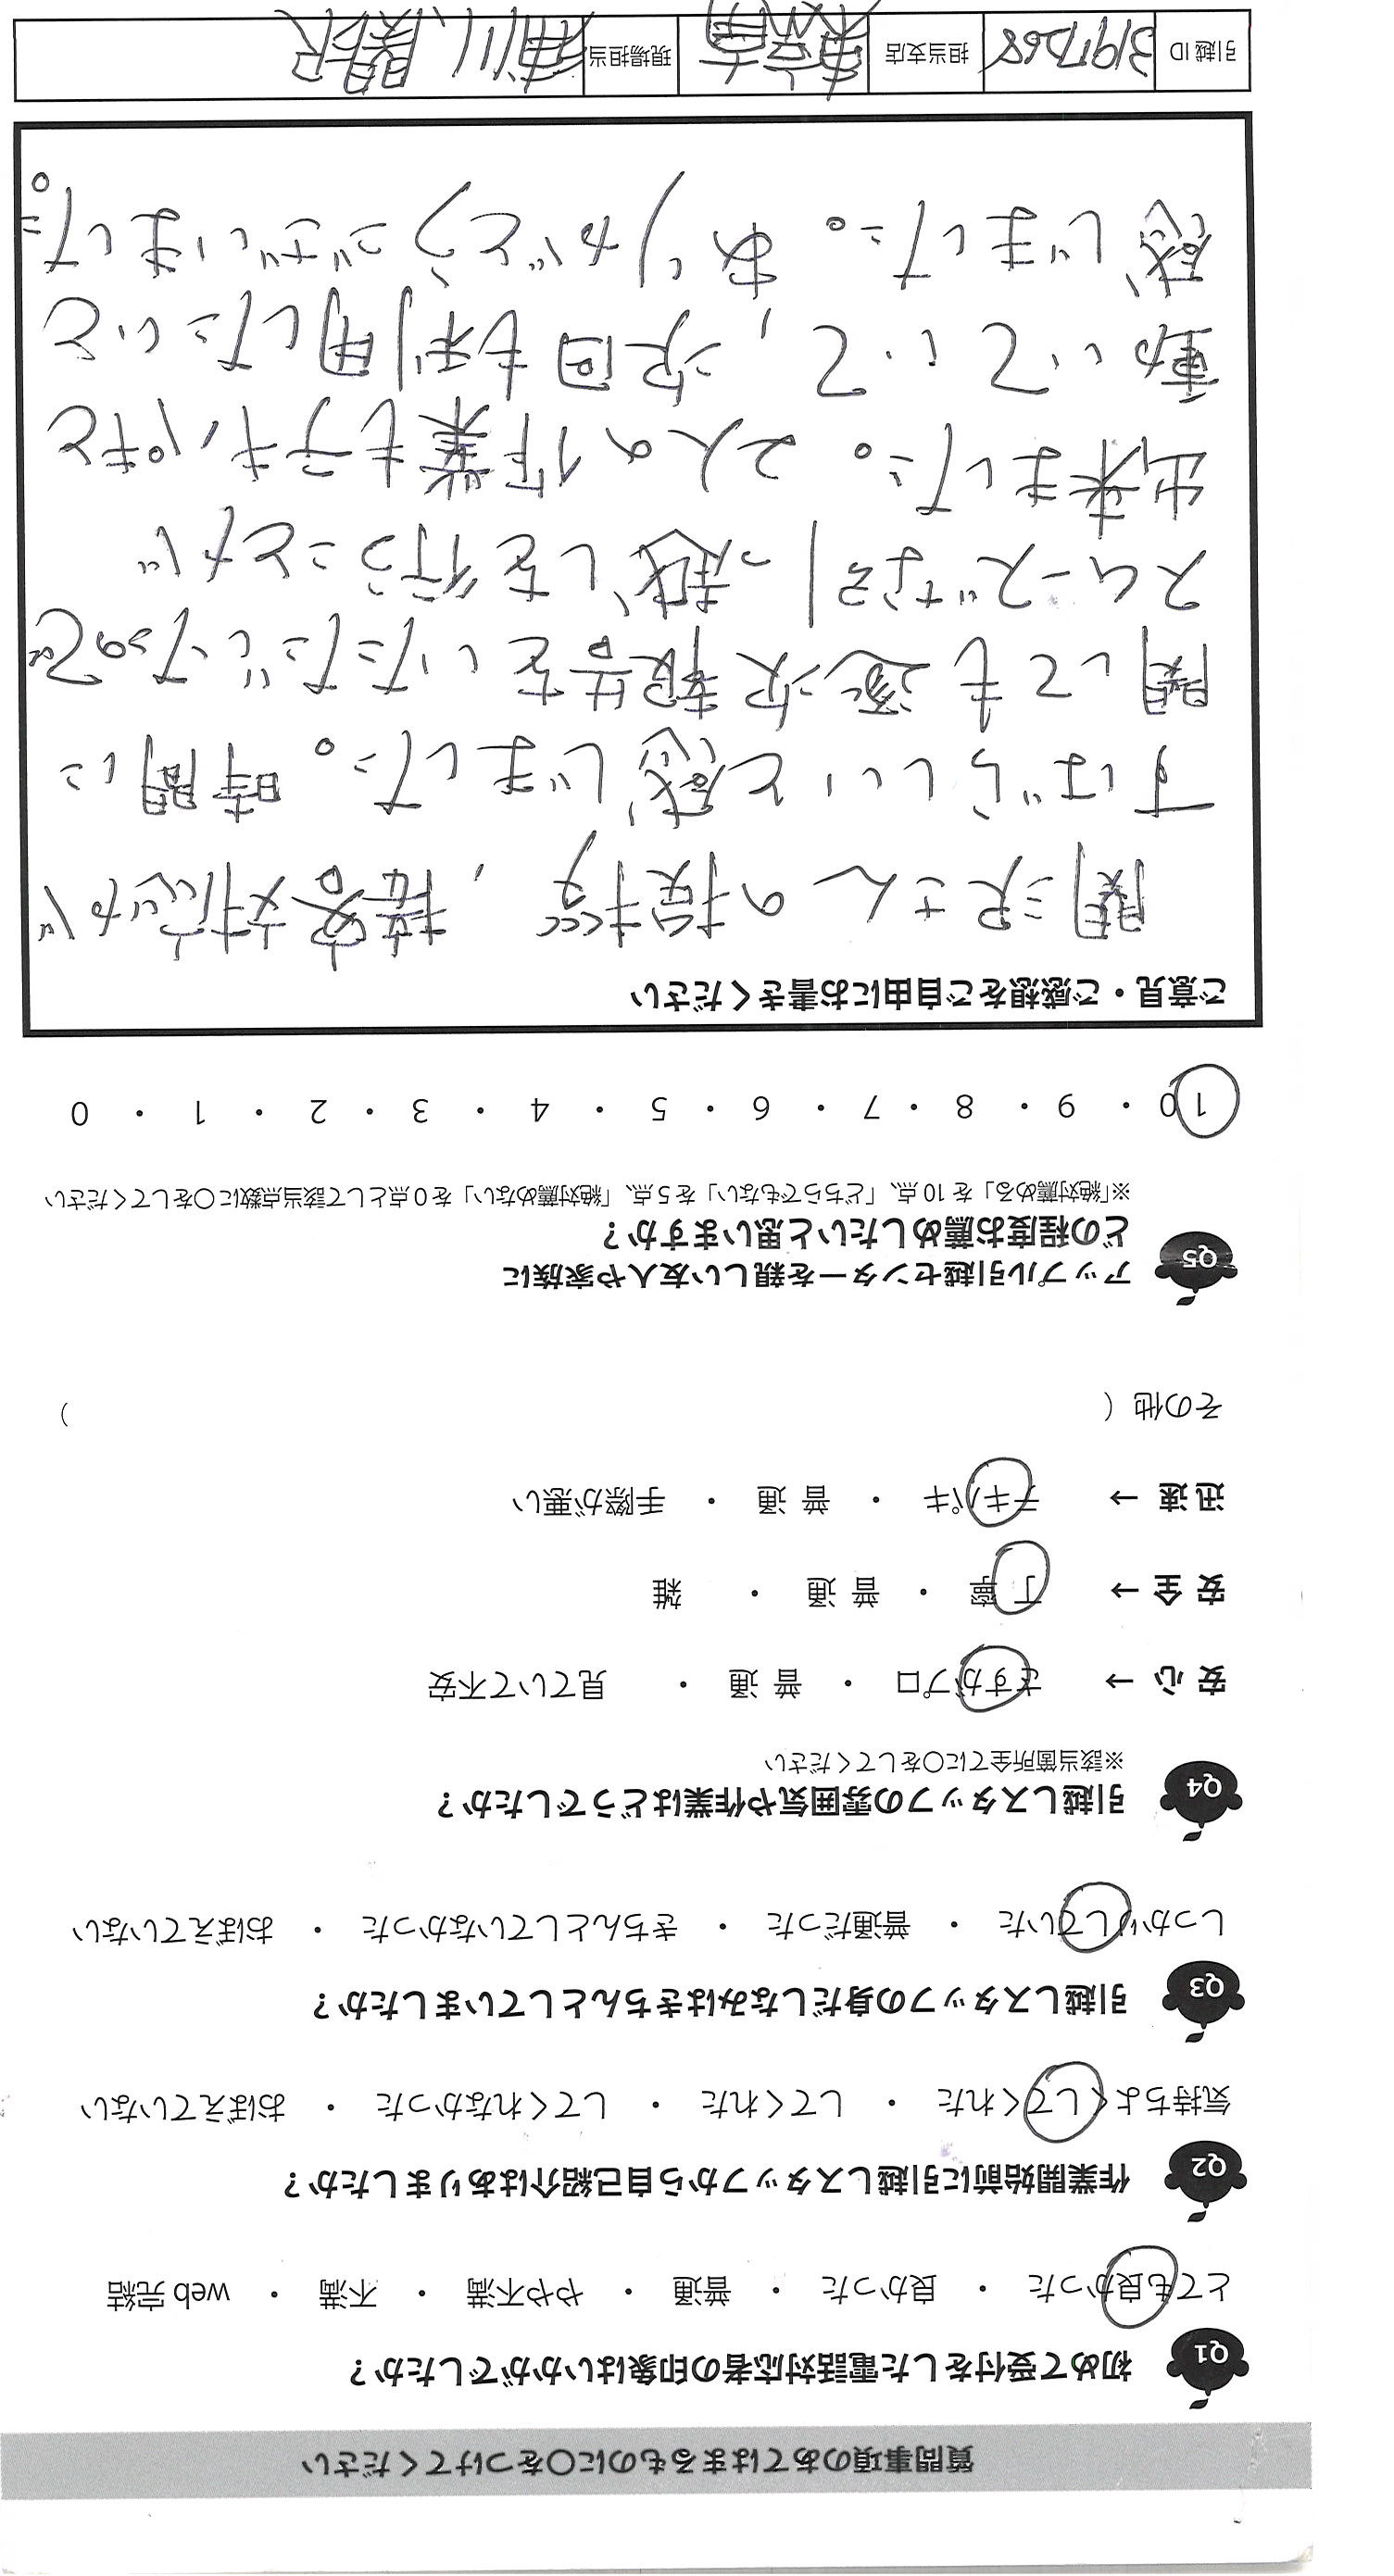 質問事項のあてはまるものに〇をつけてください
Q1 初めて受付をした電話対応者の印象はいかがでしたか？
とても良かった ・ 良かった ・ 普通 ・ やや不満 ・ 不満 ・ web 完結
Q2 作業開始前に引越しスタッフから自己紹介はありましたか？
気持ちよくしてくれた ・ してくれた ・ してくれなかった ・ おぼえていない
Q3 引越しスタッフの身だしなみはきちんとしていましたか？
しっかりしていた ・ 普通だった ・ きちんとしていなかった ・ おぼえていない
Q4 引越しスタッフの雰囲気や作業はどうでしたか？
※該当箇所全てに〇をしてください
安 心 → さすがプロ ・ 普 通 ・ 見ていて不安
安 全 → 丁 寧 ・ 普 通 ・ 雑
迅 速 → テキパキ ・ 普 通 ・ 手際が悪い
その他（ ）
Q5 アップル引越センターを親しい友人や家族に
どの程度お薦めしたいと思いますか？
※「絶対薦める」を 10 点、「どちらでもない」を 5 点、「絶対薦めない」を 0 点として該当点数に〇をしてください
10 ・ 9 ・ 8 ・ 7 ・ 6 ・ 5 ・ 4 ・ 3 ・ 2 ・ 1 ・ 0
ご意見・ご感想をご自由にお書きください
関沢さんの接客、接客対応が
すばらしいと感じました。時間に
関しても逐次報告をいただいてっので
スムーズなひっ越しを行うことが
出来ました。2人の作業もテキパキと
動いていて、次回も利用したいと
感じました。ありがとうございました。
引越 ID 3197268 担当支店 現場担当 関沢